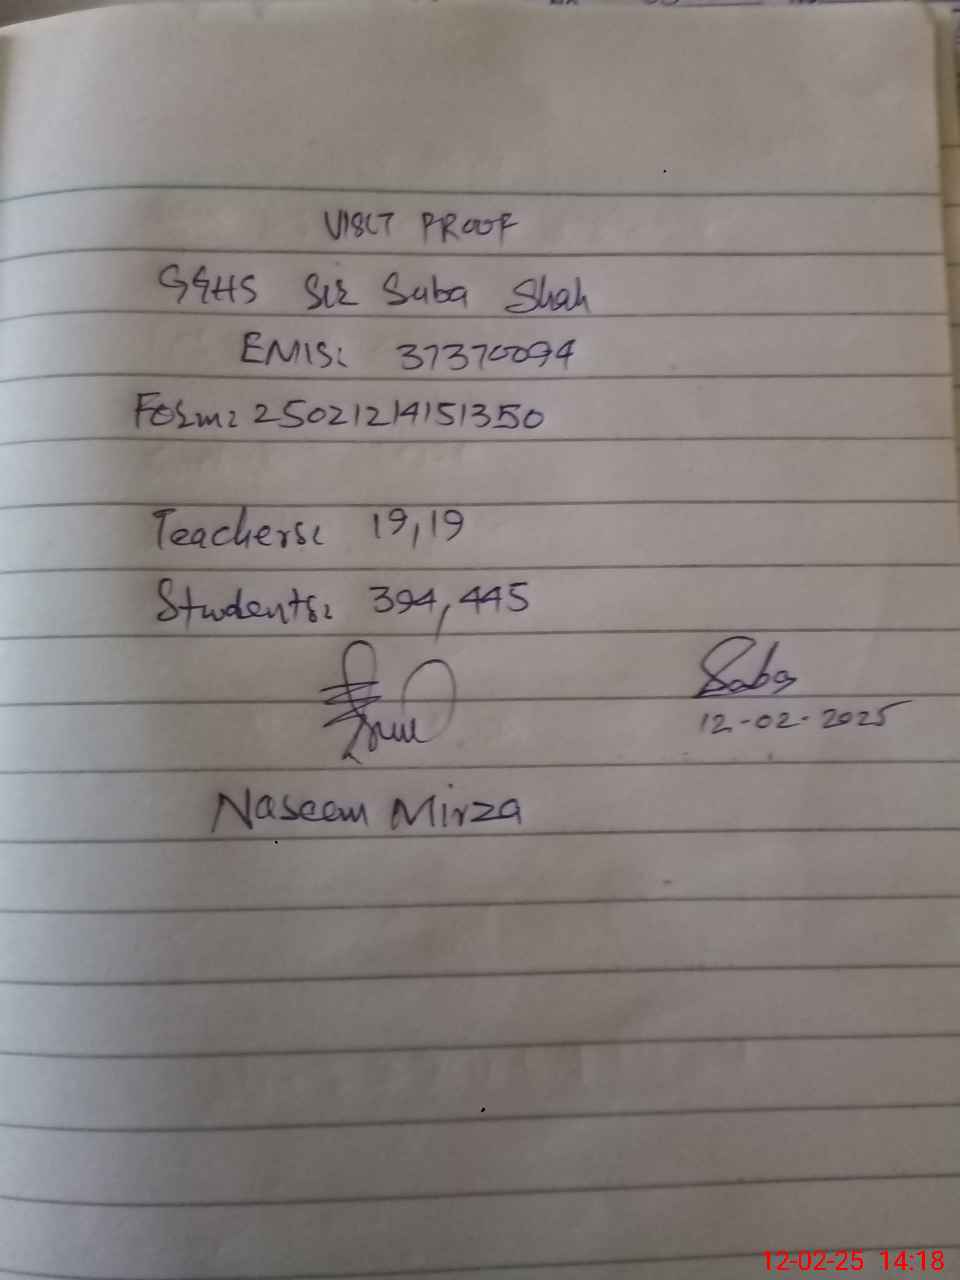 VISIT PROOF
GGHS Sir Saba Shah
EMIS: 37370094
Form: 25021214151350
Teachers: 19,19
Students: 394,445
Saba
12-02-2025
Naseem Mirza
12-02-25 14:18